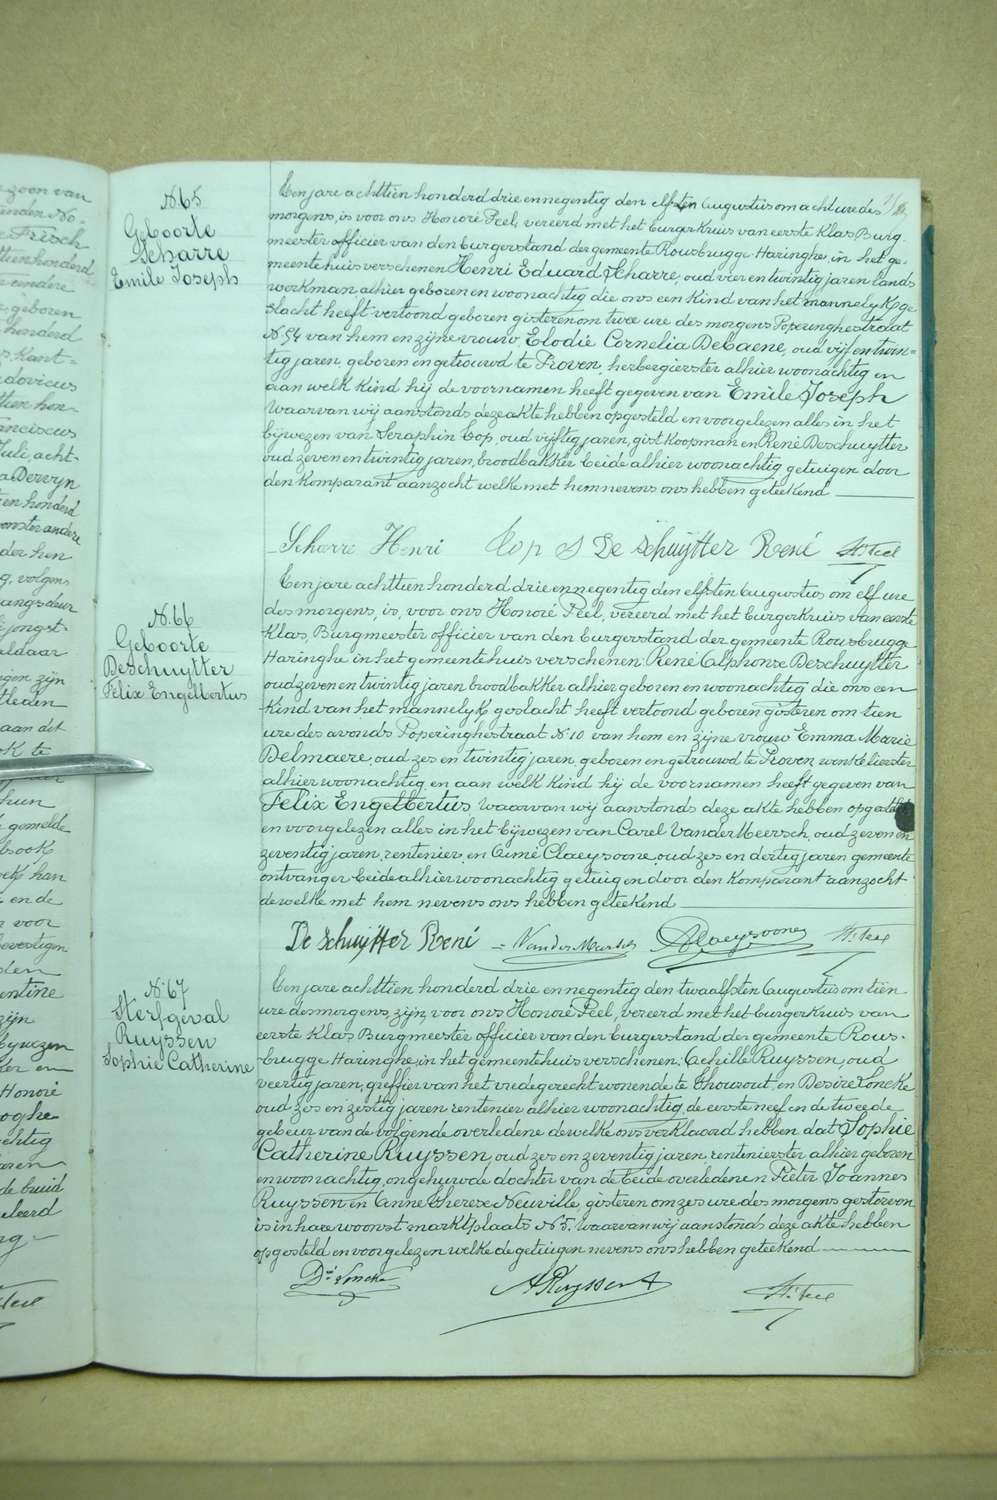 zoon van
Frisch
tienhonderd
andere
geboren
honderd
Kant-
dovicus
tien hon-
anciscus
Juli acht-
a Dervyn
en honderd
der hen
g, volgens
jongst-
igen zijn
aan dit
ok te
hun
gemelde
ek han
en de
n voor
bevestigen
entine
zijn
bywezen
Honoré
ooghe
achtig
de bruid
N. 65
Geboorte
Scharre
Emile Joseph
Een jare achttien honderd drie en negentig den elfsten Augustus om acht ure des
morgens, is voor ons Honoré Peel, vereerd met het Burgerkruis van eerste Klas, Burg-
meester officier van den burgerstand der gemeente Rousbrugge Haringhe, in het ge-
meentehuis verschenen Henri Eduard Scharre, oud vier en twintig jaren lands
werkman alhier geboren en woonachtig die ons een kind van het mannelyk ge-
slacht heeft vertoond geboren gisteren om twee ure des morgens Poperinghestraat
N. 54 van hem en zijne vrouw Elodie Cornelia DeCaene, oud vijf en twin-
tig jaren, geboren en getrouwd te Proven, herbergierster alhier woonachtig en
aan welk kind hij de voornamen heeft gegeven van Emile Joseph
Waarvan wij aanstonds deze akte hebben opgesteld en voorgelezen alles in het
bijwezen van Seraphin Cop, oud vijftig jaren, gist koopman en René Deschuytter
oud zeven en twintig jaren, broodbakker beide alhier woonachtig getuigen door
den Komparant aanzocht welke met hem nevens ons hebben geteekend
Scharre Henri Cop S De Schuijtter René Hré Peel
N. 66
Geboorte
Deschuytter
Felix Engelbertus
Een jare achttien honderd drie en negentig den elfsten Augustus om elf ure
des morgens, is, voor ons Honoré Peel, vereerd met het Burgerkruis van eerste
Klas, Burgmeester officier van den burgerstand der gemeente Rousbrugge
Haringhe in het gemeentehuis verschenen: René Alphonse Deschuytter
oud zeven en twintig jaren broodbakker alhier geboren en woonachtig die ons een
Kind van het mannelyk geslacht heeft vertoond geboren gisteren om tien
ure des avonds Poperinghestraat N. 10 van hem en zijne vrouw Emma Marie
Delmaere, oud zes en twintig jaren, geboren en getrouwd te Proven winkelierster
alhier woonachtig en aan welk kind hij de voornamen heeft gegeven van
Felix Engelbertus waarvan wij aanstonds deze akte hebben opgesteld
en voorgelezen alles in het bijwezen van Carel VanderMeersch, oud zeven en
zeventig jaren, rentenier, en Aimé Claeysoone, oud zes en dertig jaren gemeente
ontvanger beide alhier woonachtig getuigen door den Komparant aanzocht
dewelke met hem nevens ons hebben geteekend
De Schuijtter René VanderMeersch A Claeysoone Hré Peel
N. 67
Sterfgeval
Ruyssen
Sophie Catherine
Een jare achttien honderd drie en negentig den twaalfsten Augustus om tien
ure des morgens, zijn, voor ons Honoré Peel, vereerd met het Burgerkruis van
eerste Klas Burgmeester officier van den burgerstand der gemeente Rous-
brugge Haringhe, in het gemeentehuis verschenen: Achille Ruyssen, oud
veertig jaren, greffier van het vredegerecht wonende te Thourout, en Desiré Loncke
oud zes en zestig jaren rentenier alhier woonachtig, de eerste neef en de tweede
gebeur van de volgende overledene dewelke ons verklaard hebben dat Sophie
Catherine Ruyssen, oud zes en zeventig jaren, rentenierster alhier geboren
en woonachtig, ongehuwde dochter van de beide overledenen Pieter Joannes
Ruyssen en Anne Therese Neuville, gisteren om zes ure des morgens gestorven
is in hare woonst marktplaats N. 5. Waarvan wij aanstonds deze akte hebben
opgesteld en voorgelezen welke de getuigen nevens ons hebben geteekend
Dré Loncke A Ruyssen Hré Peel